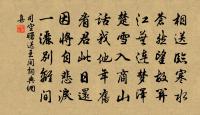 相送臨寒水
蒼然望故關
江蕪連夢澤
楚雪入商山
話我他年舊
看君此日還
因將自悲淚
一灑別離間
司空曙送王閏詞典網
集